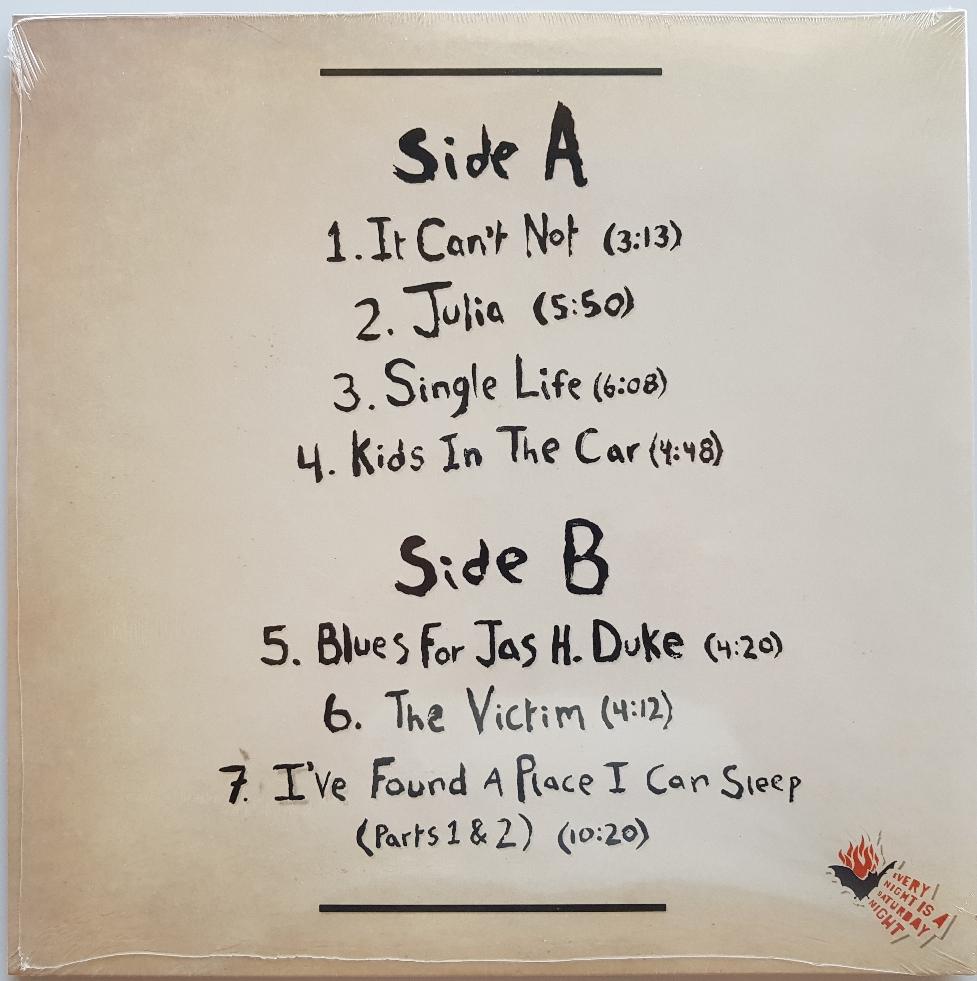 Side A
1. It Can't Not (3:13)
2. Julia (5:50)
3. Single Life (6:08)
4. Kids In The Car (4:48)
Side B
5. Blues For Jas H. Duke (4:20)
6. The Victim (4:12)
7. I've Found A Place I Can Sleep
(Parts 1 & 2) (10:20)
EVERY
NIGHT IS A
SATURDAY
NIGHT